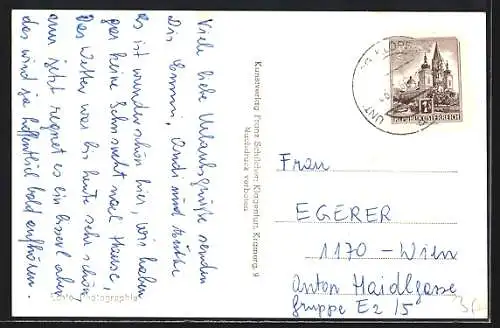 Viele liebe Urlaubsgrüße senden
Dir Emmi, Andi und
Es ist wunderschön hier, wir haben
gar keine Sehnsucht nach Hause,
Das Wetter war bis heute sehr schön,
nur jetzt regnet es ein bisserl aber
das wird ja hoffentlich bald aufhören.
Echte Photographie
Kunstverlag Franz Schilcher, Klagenfurt,
Nachdruck verboten
REPUBLIK ÖSTERREICH
Frau
EGERER
1170 - Wien
Anton Haidlgasse
Gruppe E2/5